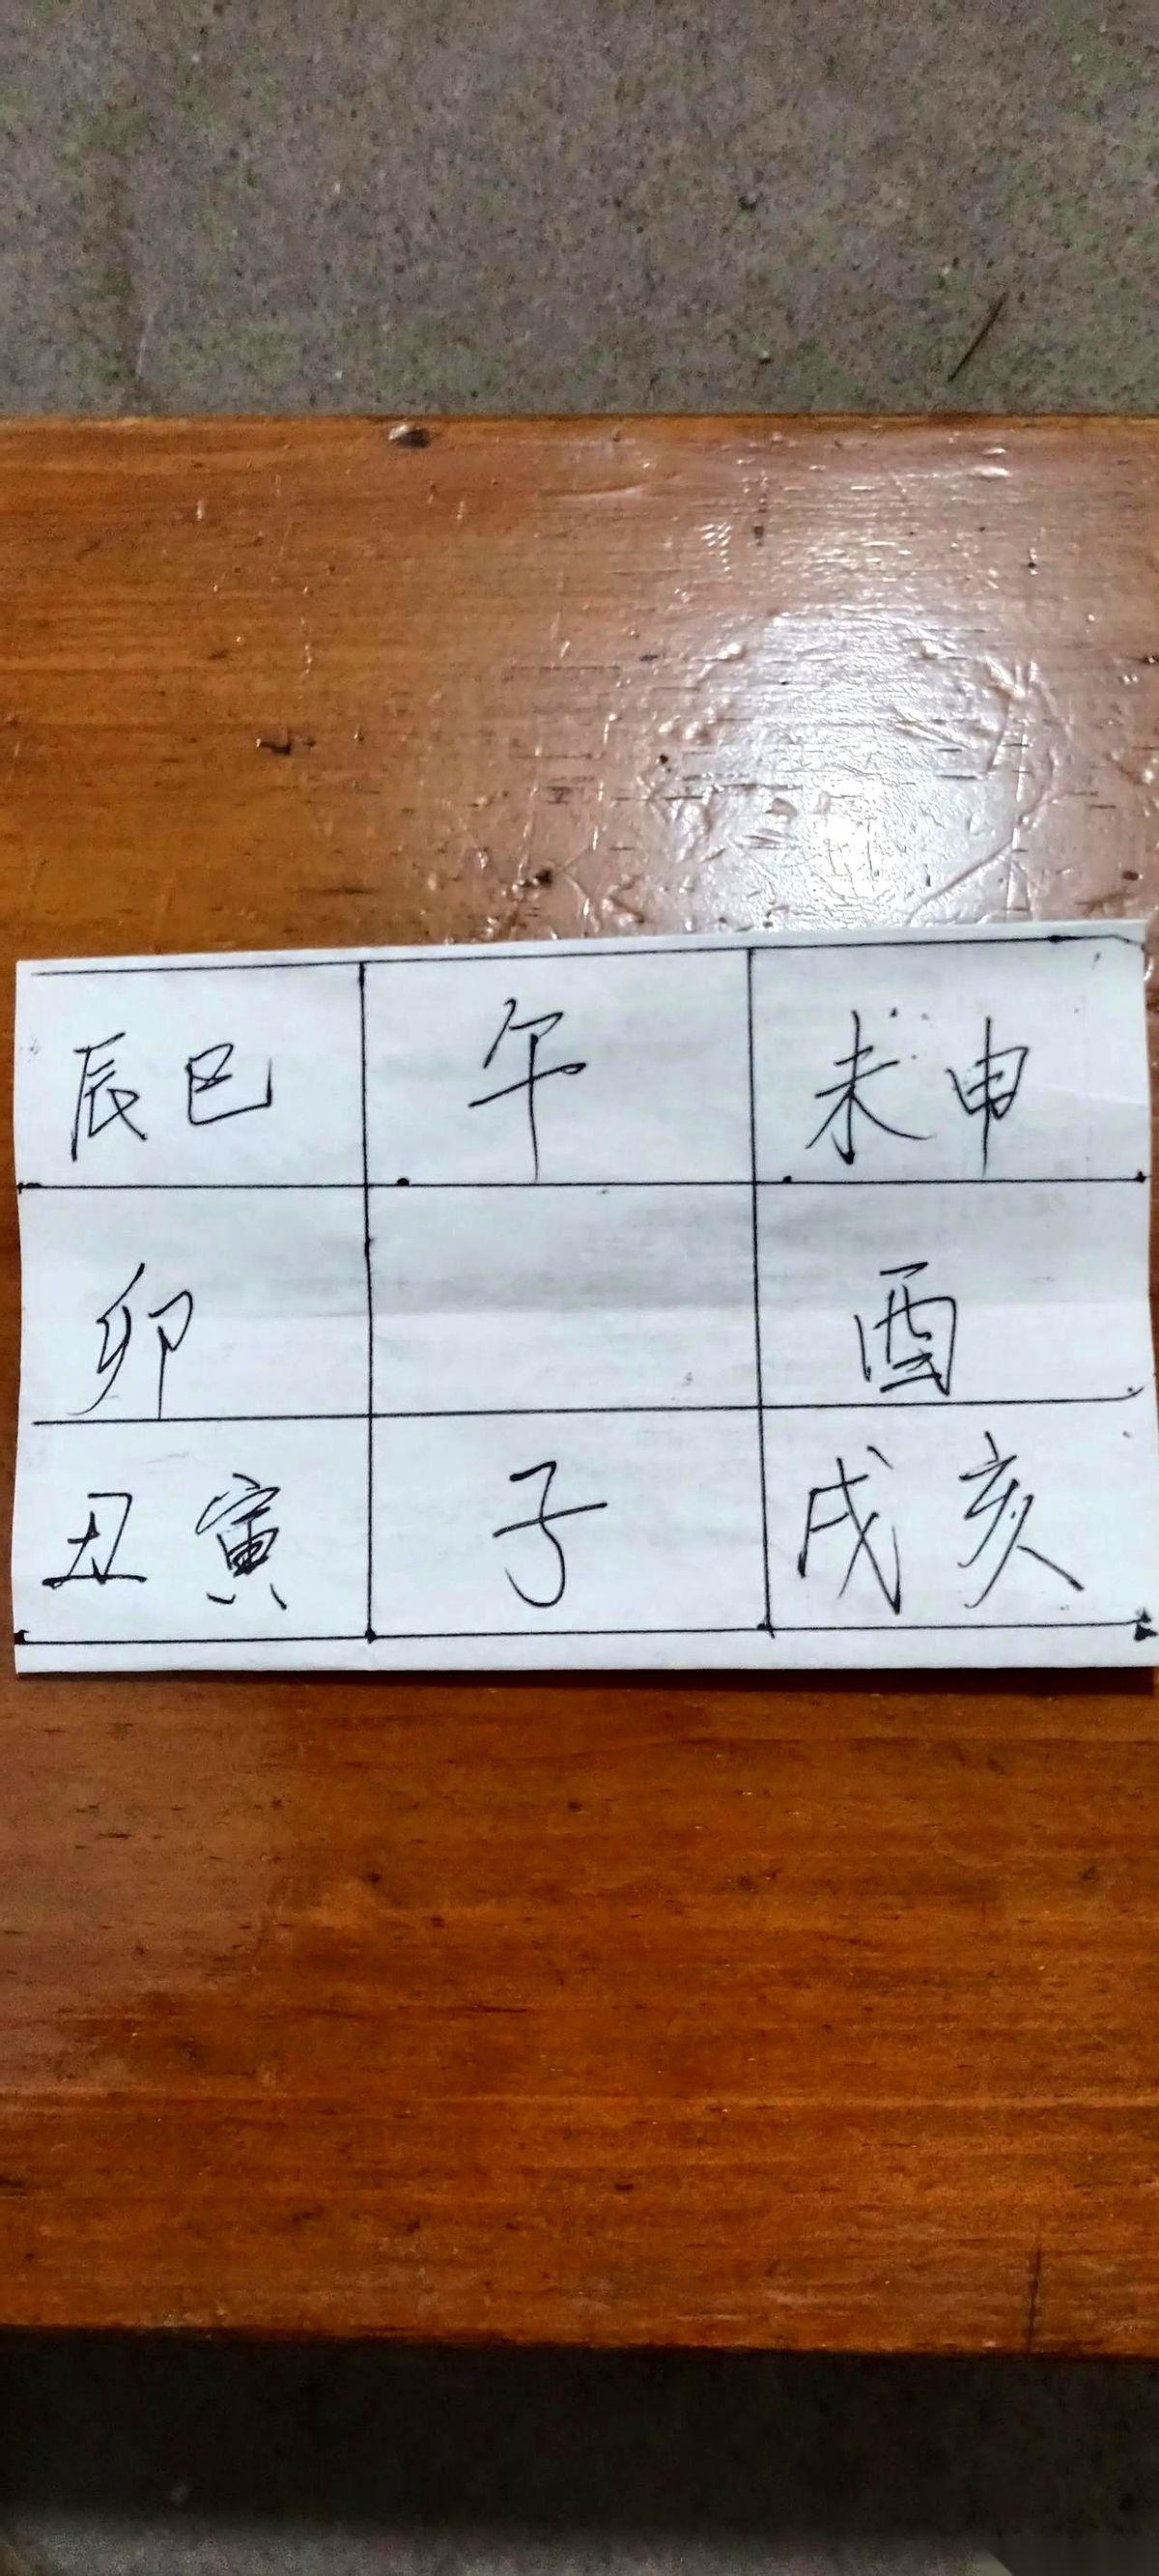 辰巳 午 未申
卯 酉
丑寅 子 戌亥